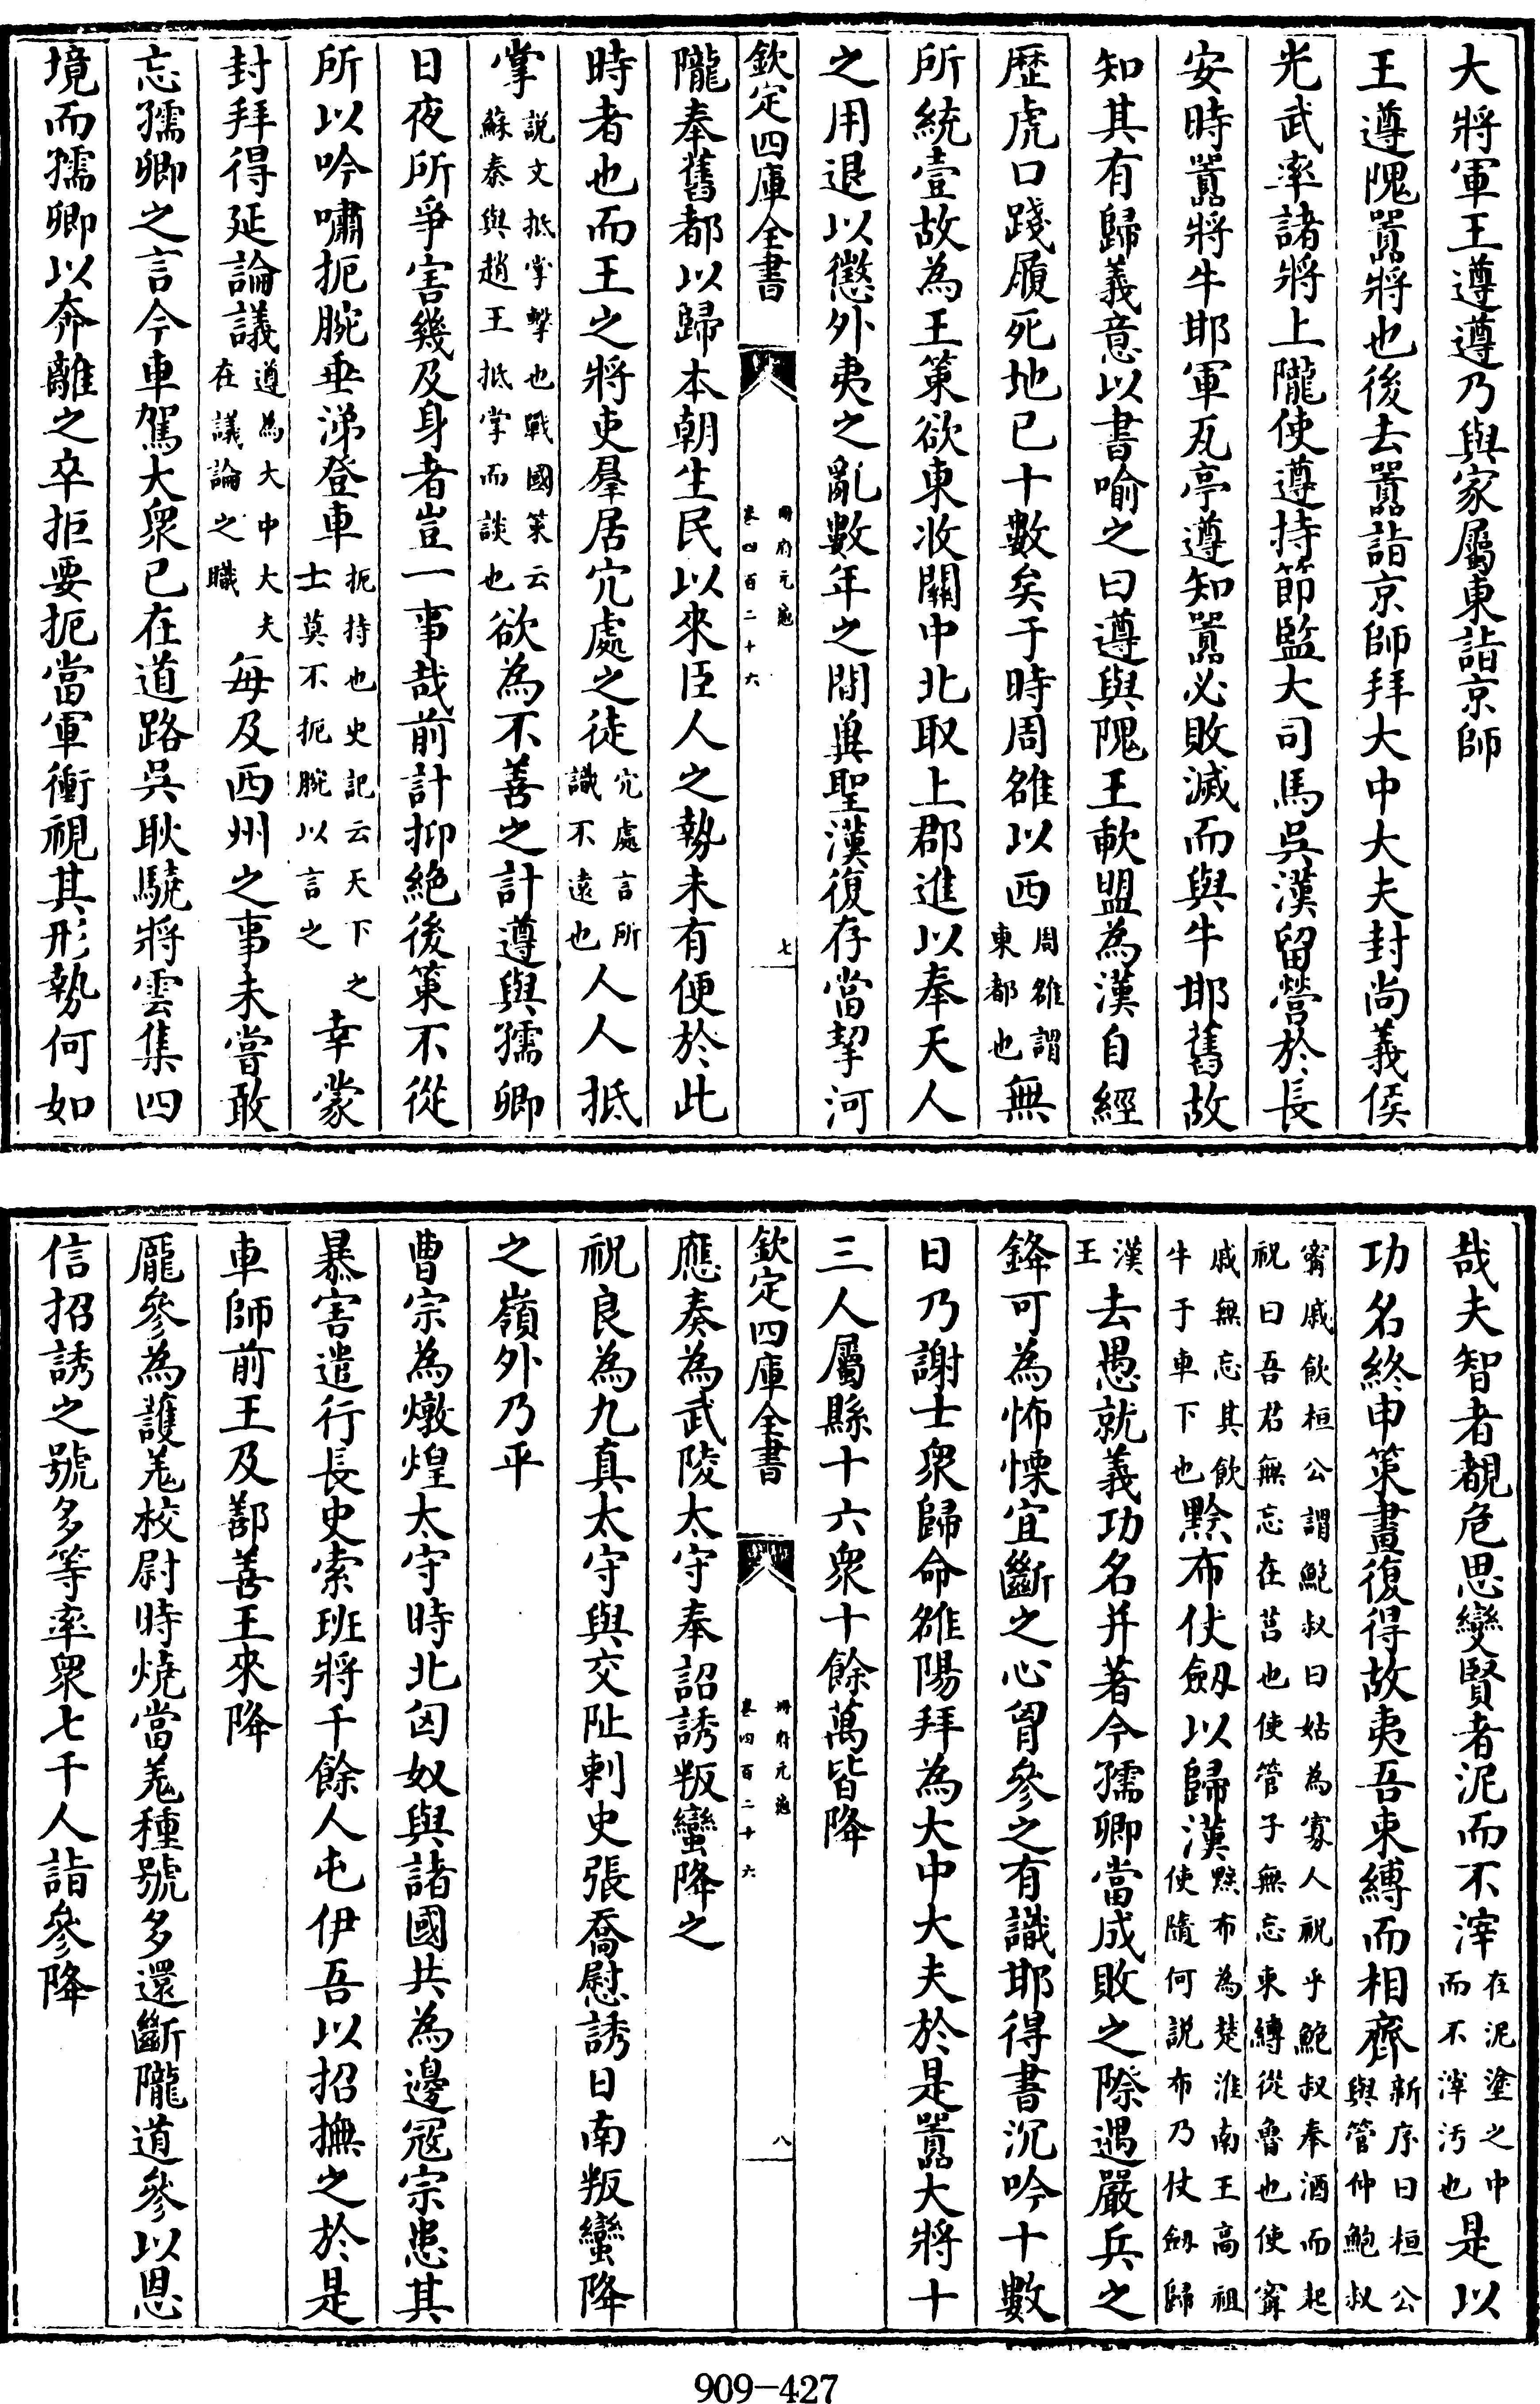 大將軍王遵遵乃與家屬東詣京師
王遵隗囂將也後去囂詣京師拜大中大夫封尚義侯
光武率諸將上隴使遵持節監大司馬吳漢留營於長
安時囂將牛邯軍瓦亭遵知囂必敗滅而與牛邯舊故
知其有歸義意以書喻之曰遵與隗王歃盟為漢自經
歴虎口踐履死地已十數矣于時周雒以西周雒謂東都也無
所統壹故為王策欲東收關中北取上郡進以奉天人
之用退以懲外夷之亂數年之間冀聖漢復存當挈河
欽定四庫全書
冊府元龜
卷四百二十六
七
隴奉舊都以歸本朝生民以來臣人之勢未有便於此
時者也而王之將吏羣居穴處之徒穴處言所識不遠也人人抵
掌説文抵掌擊也戰國策云蘇秦與趙王抵掌而談也欲為不善之計遵與孺卿
日夜所爭害幾及身者豈一事哉前計抑絶後策不從
所以吟嘯扼腕垂涕登車扼持也史記云天下之士莫不扼腕以言之幸蒙
封拜得延論議遵為大中大夫在議論之職每及西州之事未嘗敢
忘孺卿之言今車駕大衆已在道路吳耿驍將雲集四
境而孺卿以奔離之卒拒要扼當軍衝視其形勢何如
哉夫智者覩危思變賢者泥而不滓在泥塗之中而不滓汚也是以
功名終申策畫復得故夷吾束縛而相齊新序曰桓公與管仲鮑叔
甯戚飲桓公謂鮑叔曰姑為寡人祝乎鮑叔奉酒而起祝曰吾君無忘在莒也使管子無忘束縛從魯也使甯
戚無忘其飲牛于車下也黥布仗劒以歸漢黥布為楚淮南王高祖使隨何説布乃仗劒歸
漢王去愚就義功名并著今孺卿當成敗之際遇嚴兵之
鋒可為怖慄宜斷之心胷參之有識邯得書沉吟十數
日乃謝士衆歸命雒陽拜為大中大夫於是囂大將十
三人屬縣十六衆十餘萬皆降
欽定四庫全書
冊府元龜
卷四百二十六
八
應奏為武陵太守奉詔誘叛蠻降之
祝良為九真太守與交阯刺史張喬慰誘日南叛蠻降
之嶺外乃平
曹宗為燉煌太守時北匈奴與諸國共為邊寇宗患其
暴害遣行長史索班將千餘人屯伊吾以招撫之於是
車師前王及鄯善王來降
龐參為護羌校尉時燒當羌種號多還斷隴道參以恩
信招誘之號多等率衆七千人詣參降
909-427